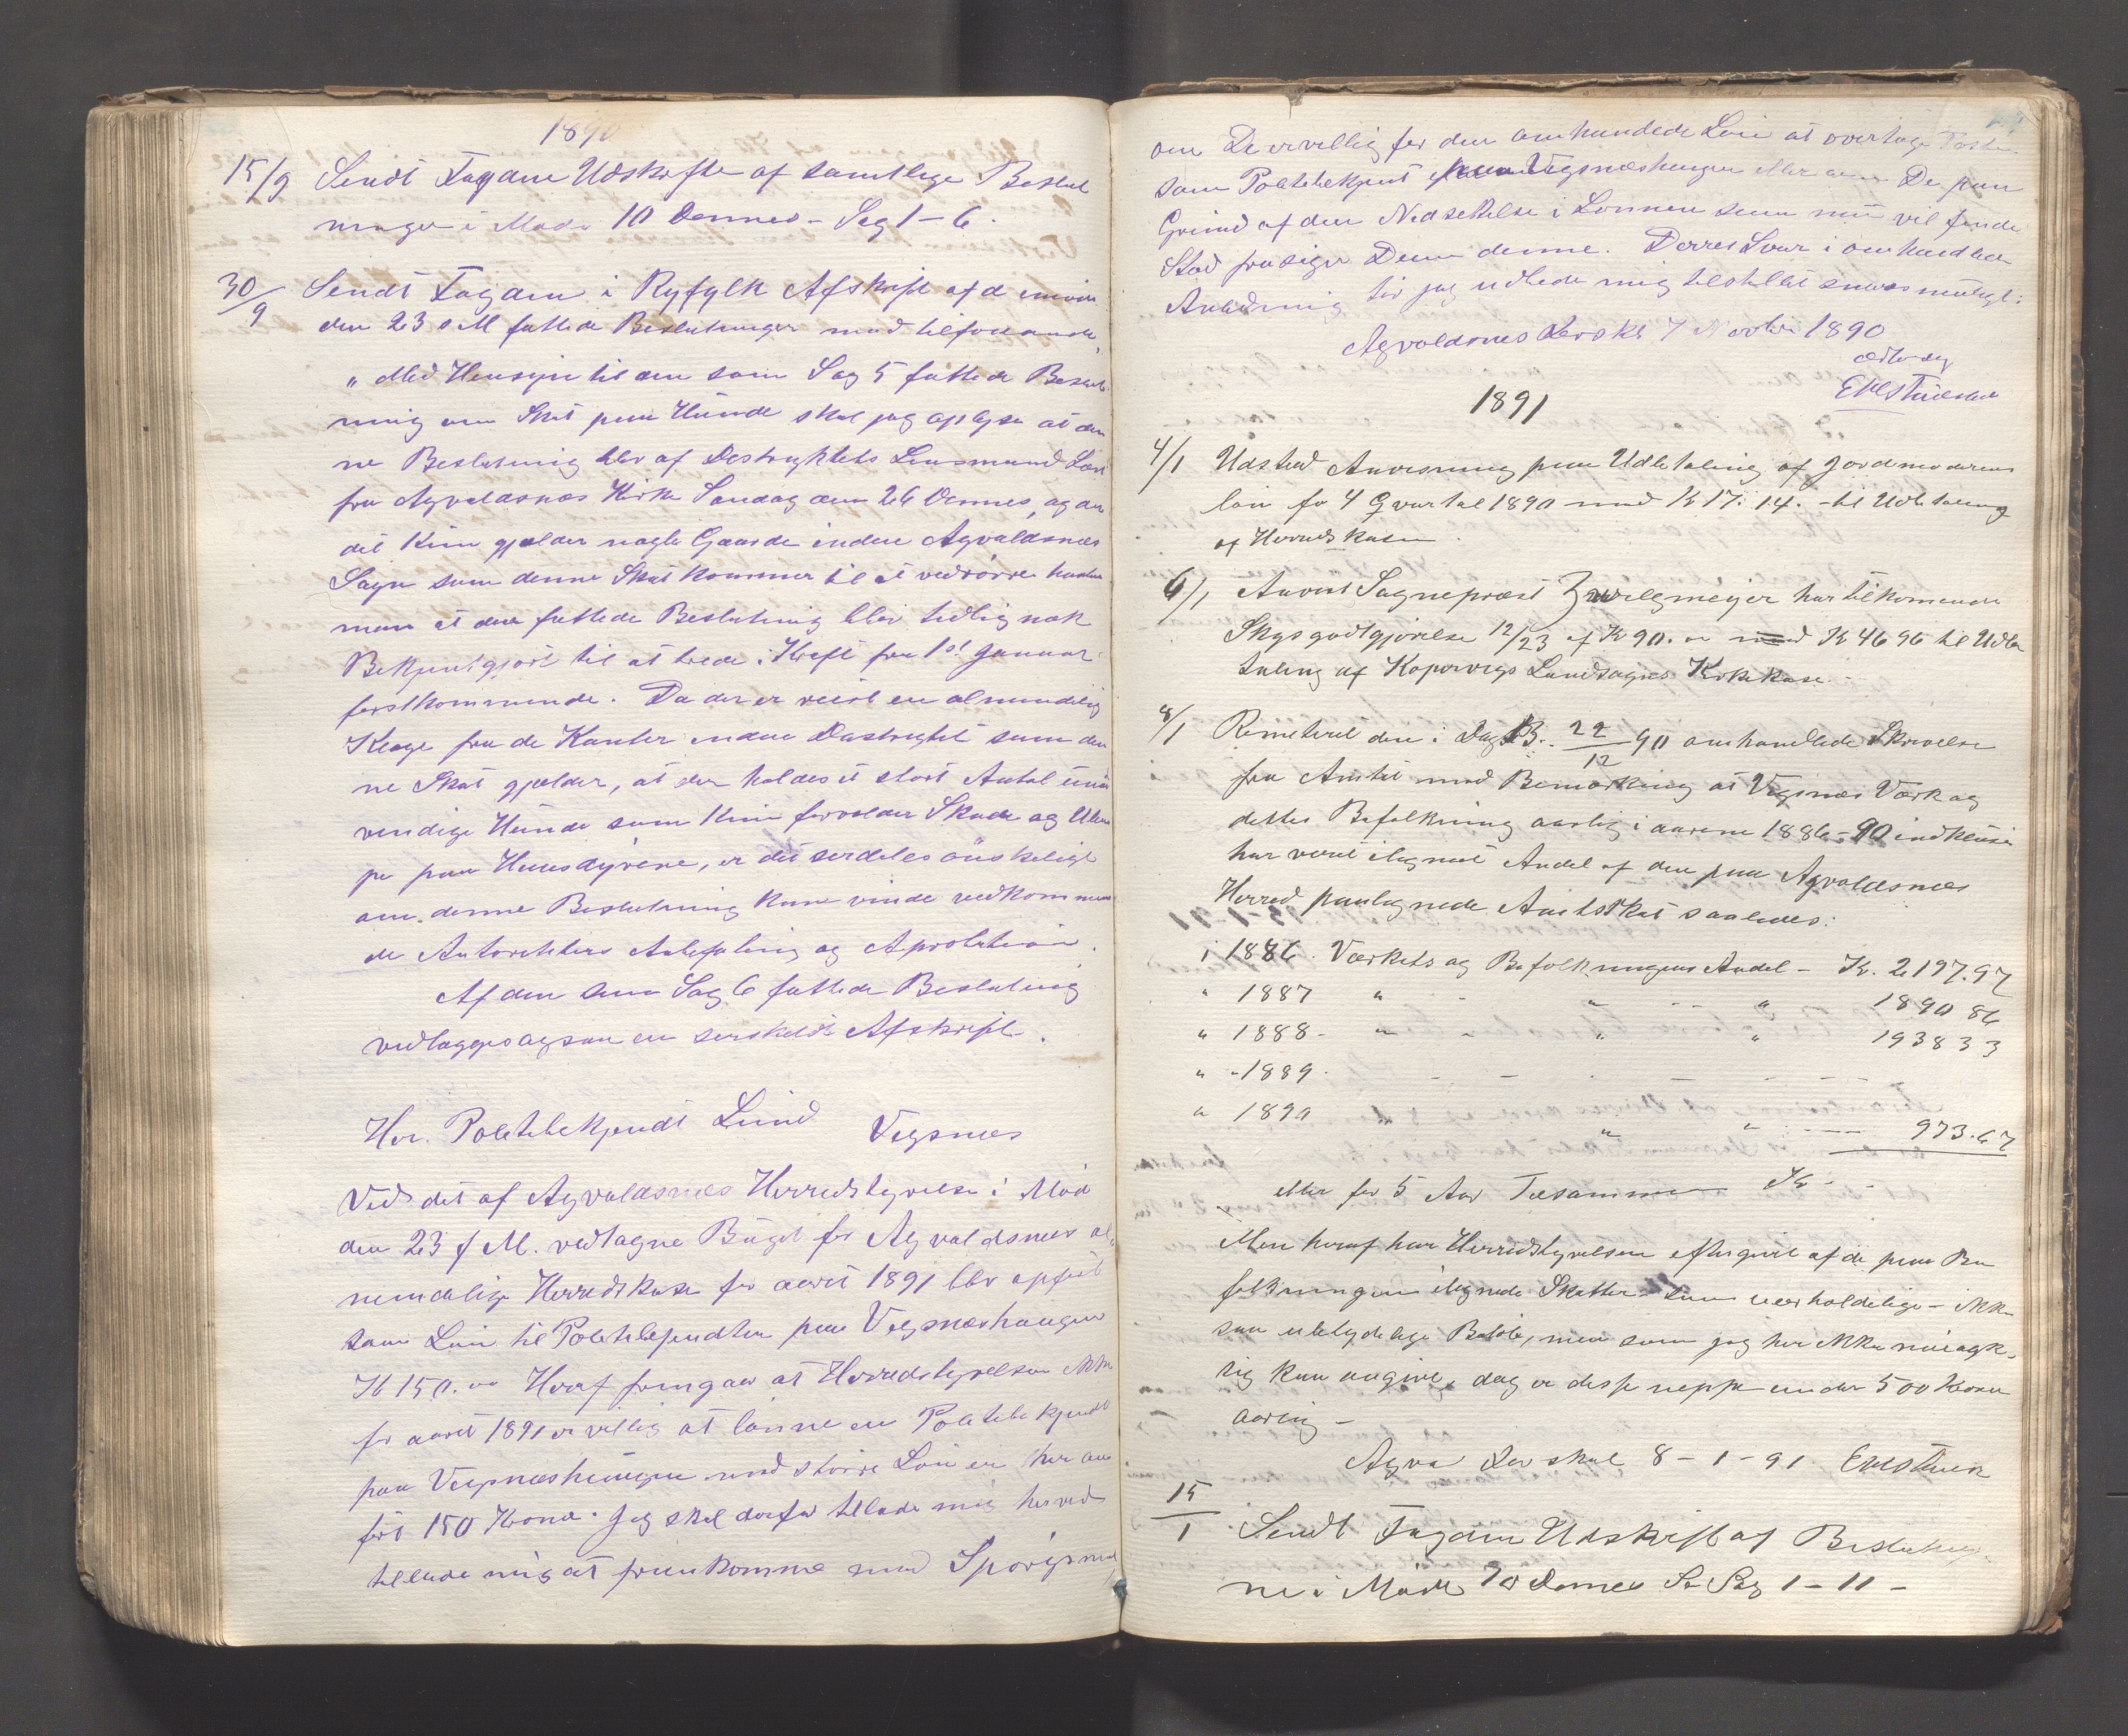 1890
15/9 Sendt Fogden Udskrifter af samtlige Beslut
ninger i Møde 10 Dennes - Sag 1-6.
30/9 Sendt Fogden i Ryfylk Afskrift af d
den 23 s M fattede Beslutninger med tilføiende
„Med Hensyn til den som Sag 5 fattede Beslut
ning om Skat paa Hunde skal jeg oplyse at den
ne Beslutning blev af Destryktets Lensmand
fra Agvaldsnæs Kirke Søndag den 26 Dennes, og da
det kun gjælder nogle Gaarde inden Agvaldsnæs
Sogn som denne Skat kommer til at vedrørre
man at den fattede Beslutning blev tidlig nok
Bekjentgjort til at træde i Kraft fra 1st Januar
førstkommende. Da der er reist en almindelig
Klage fra de Kanter inden Destryktet som den
ne Skat gjælder, at der holdes et stort Antal unød
vendige Hunde som kun forvolder Skade og Ulem
pe paa Huusdyrene, er det serdeles ønskeligt
om denne Beslutning kunne vinde vedkommen
de Autoriteters Anbefaling og Aprobation.
Af den som Sag 6 fattede Beslutning
vedlægges ogsaa en serskildt Afskrift.
Hr. Politibetjendt Lund
Vigsnes
Ved det af Agvaldsnes Herredstyrelse i Mød
den 23 f M. vedtagne Büget for Agvaldsnes al
mindelige Herredskase for aaret 1891 blev opført
som Løn til Politibetjendten paa Vigsneshaugen
Kr 150.00 Heraf fremgaar at Herredstyrelsen ikke
for aaret 1891 er villig at lønne en Politibetjendt
paa Vigsneshaugen med større Løn en her an
ført 150 Kroner. Jeg skal derfor tillade mig herved
tillade mig at fremkomme med Spørgsmaal
om De er villig for den omhandlede Løn at overtage Posten
som Politibetjent paa Vigsnæshaugen eller om De paa
Grund af den Nedsettelse i Lønnen som nu vil finde
Sted frasiger Dem denne. Derres Svar i omhandlede
Anledning tør jeg udbede mig tilstillet snarest muligt.
Agvaldsnes Lerskl 7 Novbr 1890
ærbødig
1891
4/1 Udsted Anvisning paa Udbetaling af Jordmoderens
løn for 4 Qvartal 1890 med Kr 17.14. - til Udbetaling
af Herredskasen.
6/1 Anvist Sognepræst Zwilgmeyer har tilkomende
Skysgodtgjørelse 12/23 af Kr 90.00 med Kr 46 96 til Udbe
taling af Kopervigs Landsogns Kirkekase.
8/1 Remiteret den i Dag B. 22/12 90 omhandlede Skrivelse
fra Amtet med Bemærkning at Vigsnes Værk og
dettes Befolkning aarlig i aarene 1886-90 indklusiv
har været ilignet Andel af den paa Agvaldsnes
Herred paalignede Amtsskat saaledes:
i 1886. Værkets og Befolkningens Andel - Kr. 2197.97
" 1887 " - " - - " 1890 86
" 1888 - " - " " 1938 33
" - 1889. - - - - - -
" 1890 " " - - 973.67
eller for 5 Aar Tilsammen Kr - -
Men heraf har Herredstyrelsen eftergivet af de paa Be
folkningen ilignede Skatter - som uerholdelige - ikke
saa ubetydelige Beløb, men som jeg her ikke nøiagk.
tig kan angive, dog er disse neppe under 500 Kroner
aarlig -
Agva Lerskal 8-1-91
15/1 Sendt Fogden Udskrift af Beslutninger
ne i Møde Dennes Sag 1-11-